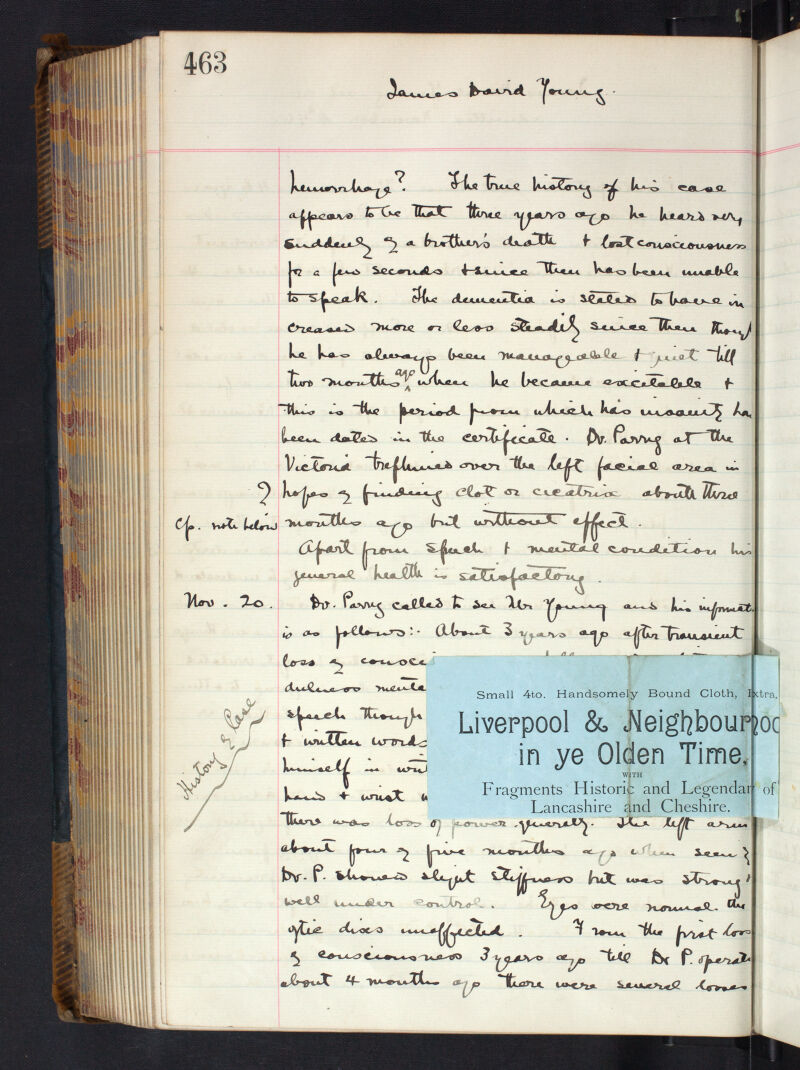 463
James David Young.
hemorrhage? The true history of his case
appears to be that three years ago he heard very
suddenly of a brother's death & lost consciousness
for a few seconds & since then has been unable
to speak. The dementia is stated to have in
creased more or less steadily since then though
he has always been manageable & quiet till
two months ago when he became excitable &
this is the period from which his insanity has
been dated in the certificate. Dr. Parry at the
Victoria trephined over the left facial area in
? hopes of finding clot or cicatrix about three
Cp. note below months ago but without effect.
Apart from speech & mental condition his
general health is satisfactory.
Nov. 20. Dr. Parry called to see Mr Young and his informat
is as follows:- About 3 years ago after transient
loss of consci
dulness menta
speech though
& written words
History of Case
himself in wri
hand & wrist
there was loss of power generally. The left arm
about four or five months ago when seen by
Dr. P. showed slight stiffness but was strong &
well under control. Eyes were normal the
optic discs unaffected. From the first loss
of consciousness 3 years ago till Dr P. operate
about 4 months ago there were several losses
Small 4to. Handsomely Bound Cloth, Extra,
Liverpool & Neighbourhoo
in ye Olden Time,
WITH
Fragments Historic and Legendary of
Lancashire and Cheshire.